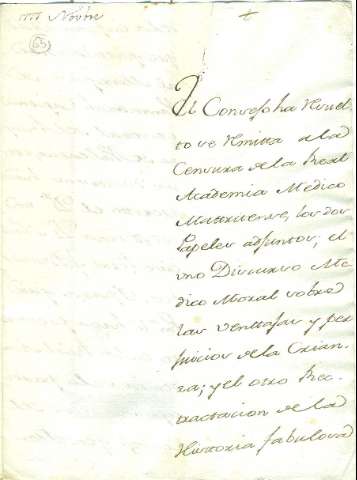 Novre
63
El Consejo ha Resuel
to se Remita a la
Censura de la Real
Academia Medico
Matritense, los dos
Papeles adjuntos, el
uno Discurso Me
dico Moral sobre
las venttajas y per
juicios de la Crian
za; y el otro Rec
tractacion de la
Historia fabulosa